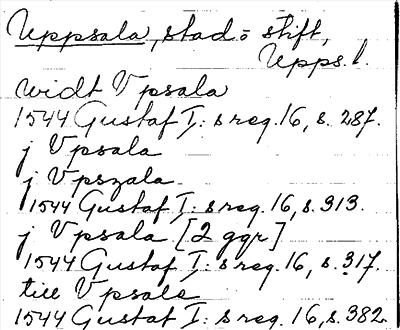 Uppsala, stad o. stift,
Upps. l.
widt Vpsala
1544 Gustaf I:s reg. 16, s. 287.
j Vpsala
j Vpszala
1544 Gustaf I:s reg. 16, s. 313.
j Vpsala [2 ggr]
1544 Gustaf I:s reg. 16, s. 317.
till Vpsala
1544 Gustaf I:s reg. 16, s. 382.